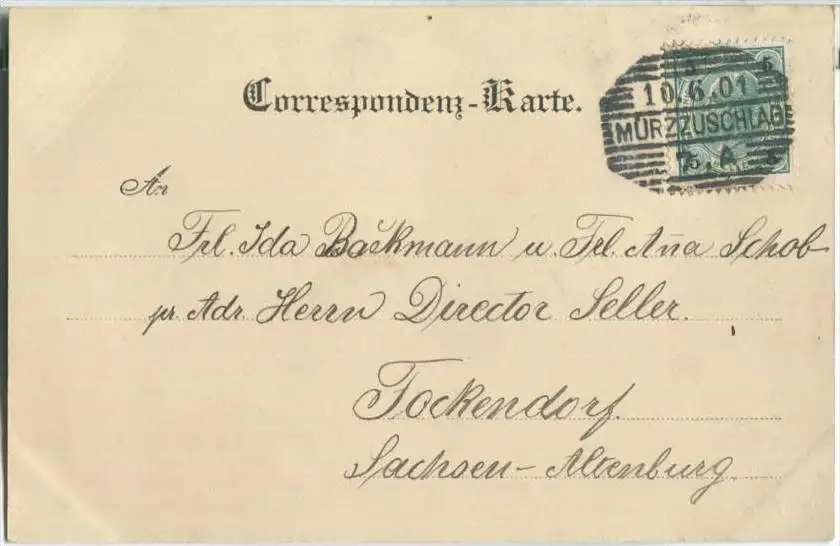 Correspondenz-Karte.
5 5
10.6.01
MÜRZZUSCHLAG
5 5
An
Frl. Ida Backmann u. Frl. Ana Schob-
pr. Adr. Herrn Director Seller.
Fockendorf.
Sachsen-Altenburg.